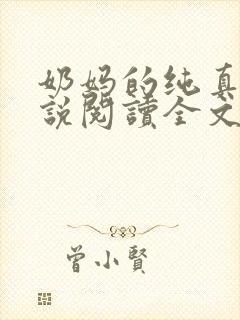 奶妈的纯真
說閱讀全文
曾小賢